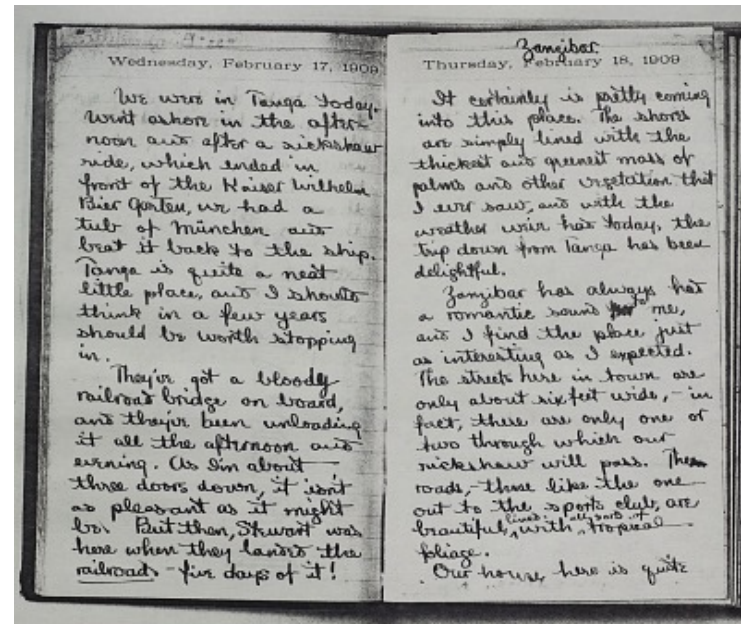 Wednesday, February 17, 1909
We were in Tanga today.
Went ashore in the after-
noon and after a rickshaw
ride, which ended in
front of the Kaiser Wilhelm
Bier Garten, we had a
tub of München and
beat it back to the ship.
Tanga is quite a neat
little place, and I should
think in a few years
should be worth stopping
in.
They've got a bloody
railroad bridge on board,
and they've been unloading
it all the afternoon and
evening. As I'm about
three doors down, it isn't
as pleasant as it might
be. But then, Stewart was
here when they landed the
railroad - five days of it!
Zanzibar.
Thursday, February 18, 1909
It certainly is pretty coming
into this place. The shores
are simply lined with the
thickest and greenest mass of
palms and other vegetation that
I ever saw, and with the
weather we've had today, the
trip down from Tanga has been
delightful.
Zanzibar has always had
a romantic sound to me,
and I find the place just
as interesting as I expected.
The streets here in town are
only about six feet wide, - in
fact, there are only one or
two through which our
rickshaw will pass. The
roads, - those like the one
out to the sports club, are
beautiful, lined with all sorts of tropical
foliage.
Our house here is quite